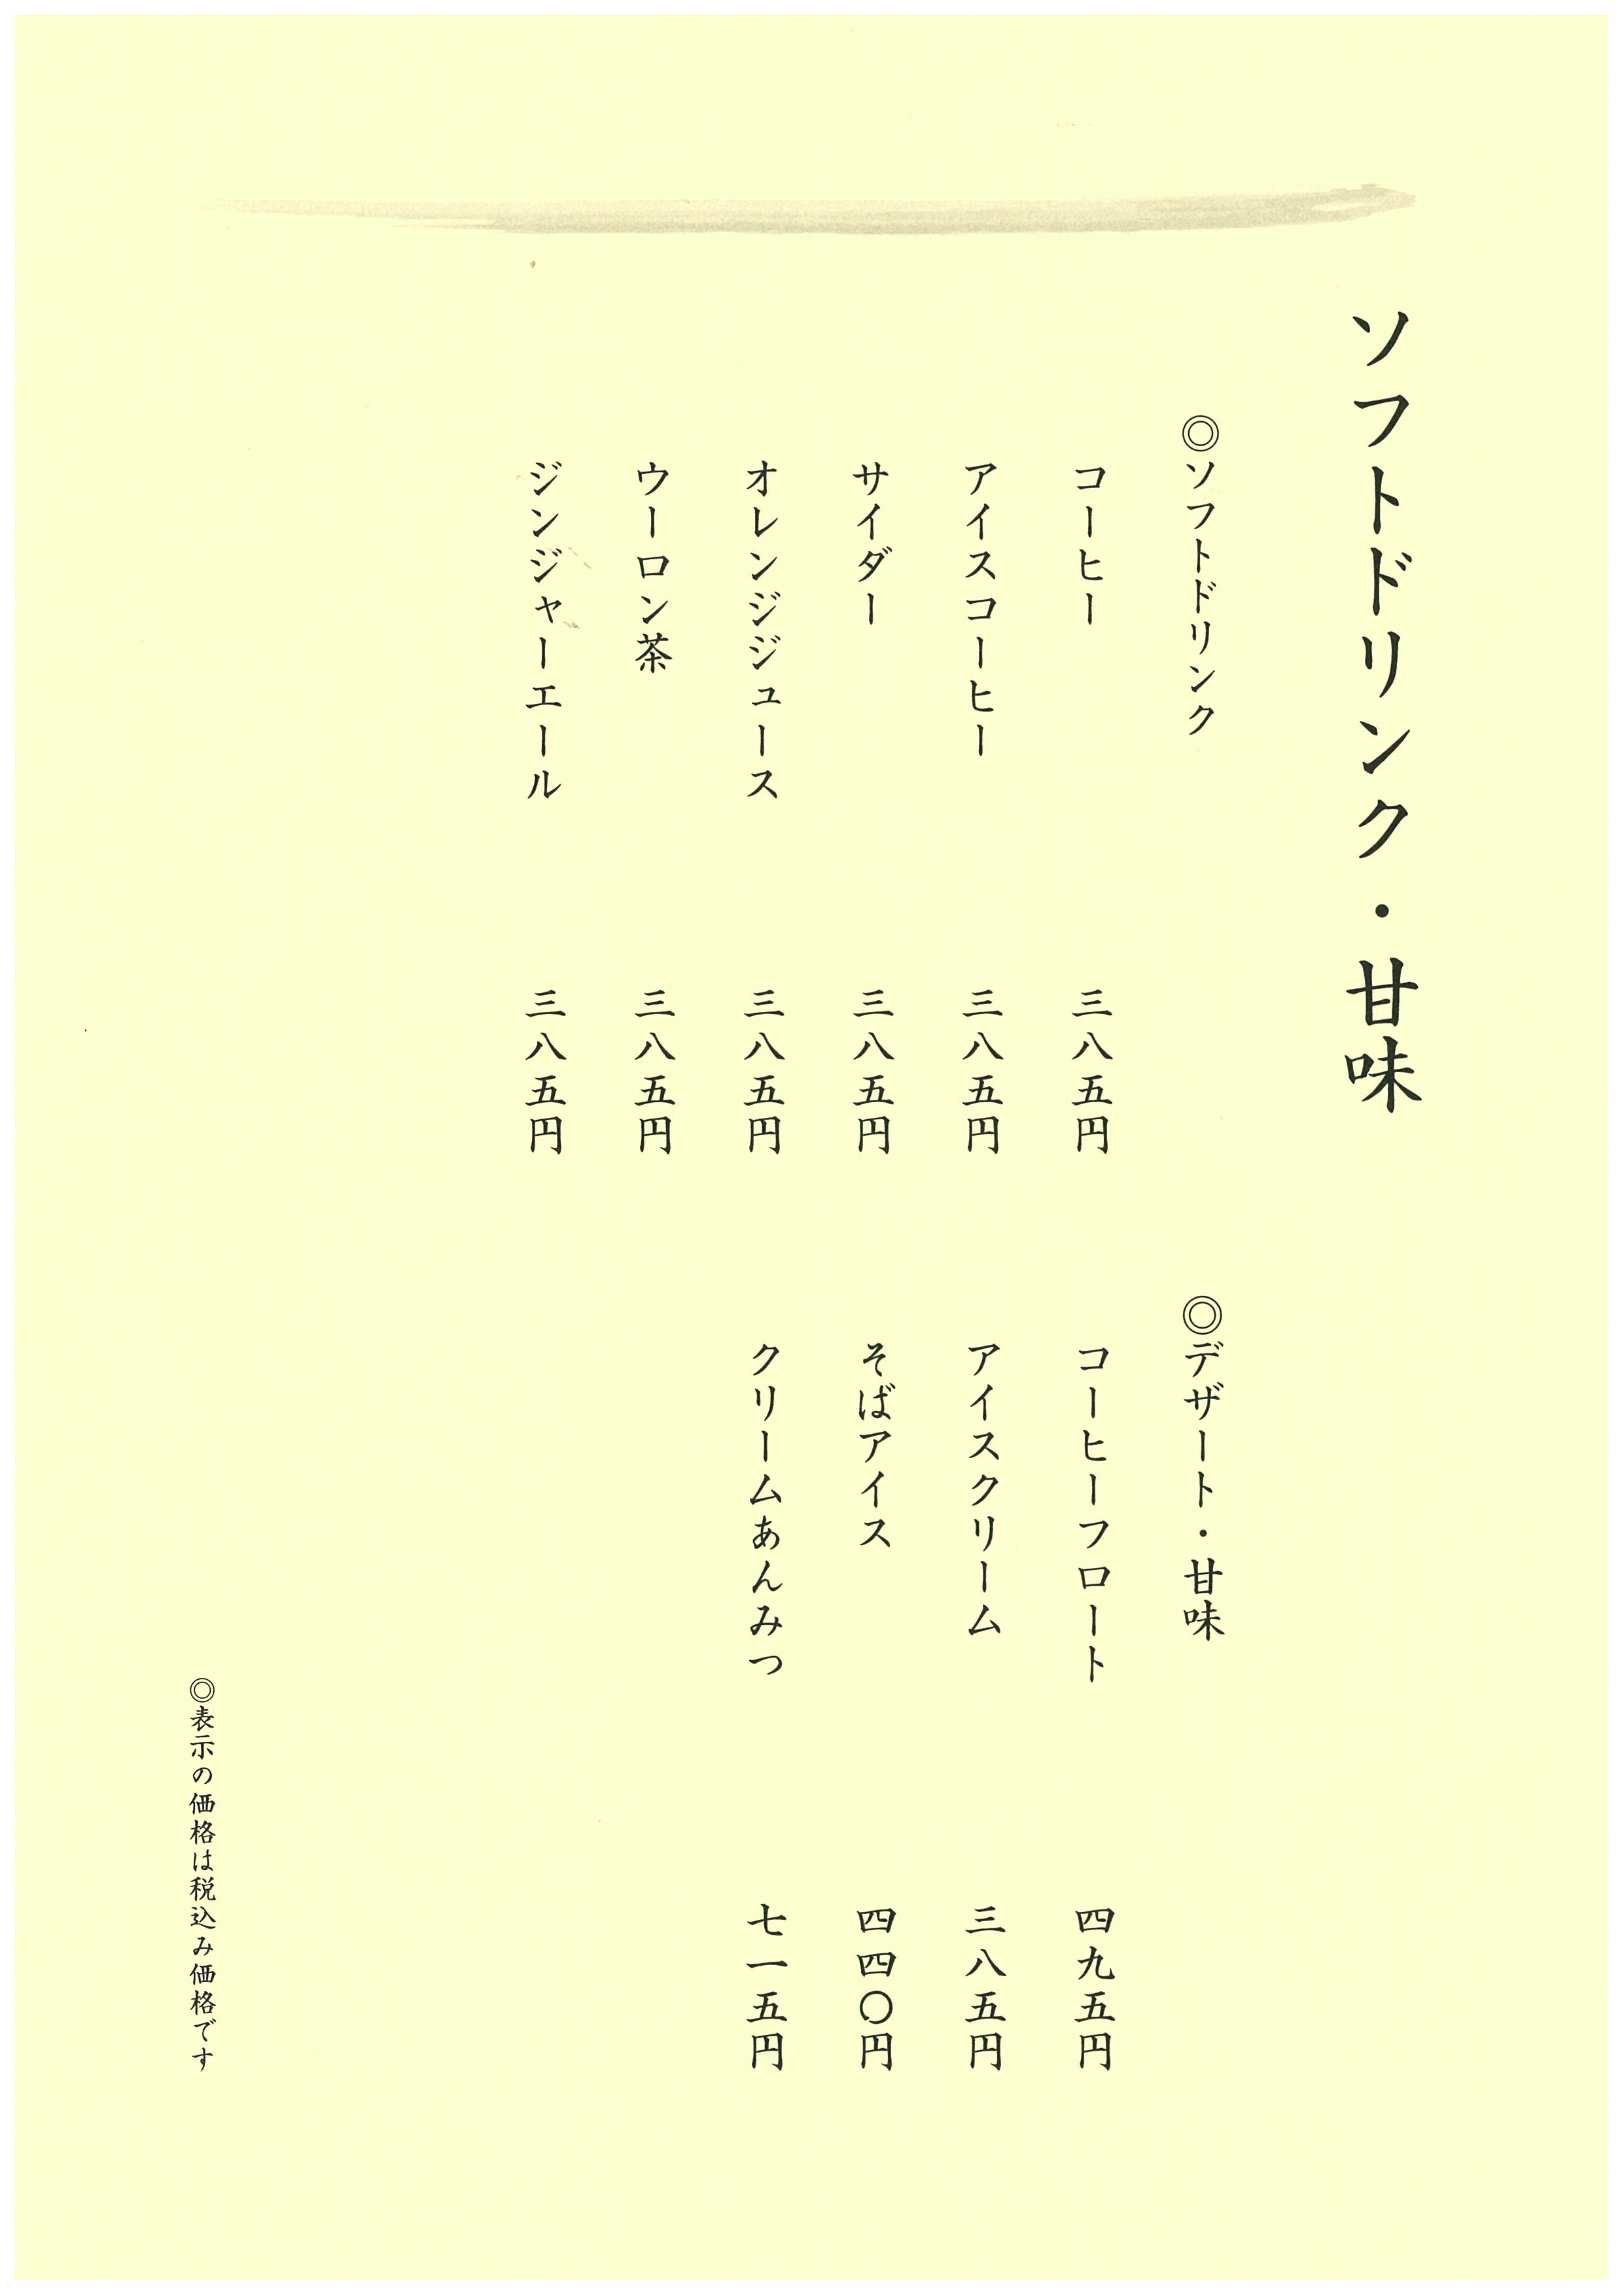 ソフトドリンク・甘味
◎ソフトドリンク
コーヒー 三八五円
アイスコーヒー 三八五円
サイダー 三八五円
オレンジジュース 三八五円
ウーロン茶 三八五円
ジンジャーエール 三八五円
◎デザート・甘味
コーヒーフロート 四九五円
アイスクリーム 三八五円
そばアイス 四四〇円
クリームあんみつ 七一五円
◎表示の価格は税込み価格です